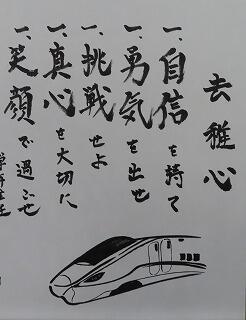 去稚心
一、自信を持て
一、勇気を出せ
一、挑戦せよ
一、真心を大切に
一、笑顔で過ごせ